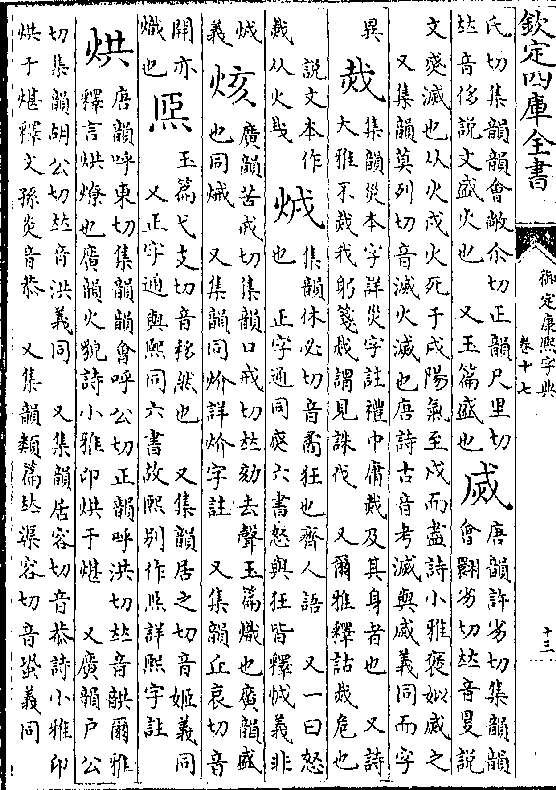 欽定四庫全書
御定康熙字典
卷十七
十三
氏切集韻韻會敞尒切正韻尺里切
𠀤音侈説文盛火也 又玉篇盛也
烕
唐韻許劣切集韻韻
會翾劣切𠀤音㕞説
文烕滅也从火戌火死于戌陽氣至戌而盡詩小雅褒姒烕之
又集韻莫列切音滅火滅也唐詩古音考滅與烕義同而字
異
烖
集韻災本字詳災字註禮中庸烖及其身者也 又詩
大雅不烖我躬箋烖謂見誅伐 又爾雅釋詁烖危也
説文本作
烖从火𢦏
集韻休必切音矞狂也齊人語 又一曰怒
也 正字通同 六書怒與狂皆釋 義非
義
烗
廣韻苦戒切集韻口戒切𠀤劾去聲玉篇熾也廣韻盛
也同 又集韻同炌詳炌字註 又集韻丘哀切音
開亦
熾也
玉篇弋支切音移 也 又集韻居之切音姬義同
又正字通與熙同六書故熙別作 詳熙字註
烘
唐韻呼東切集韻韻會呼公切正韻呼洪切𠀤音谼爾雅
釋言烘燎也廣韻火貌詩小雅卬烘于煁 又廣韻戸公
切集韻胡公切𠀤音洪義同 又集韻居容切音恭詩小雅卬
烘于煁釋文孫炎音恭 又集韻類篇𠀤渠容切音蛩義同